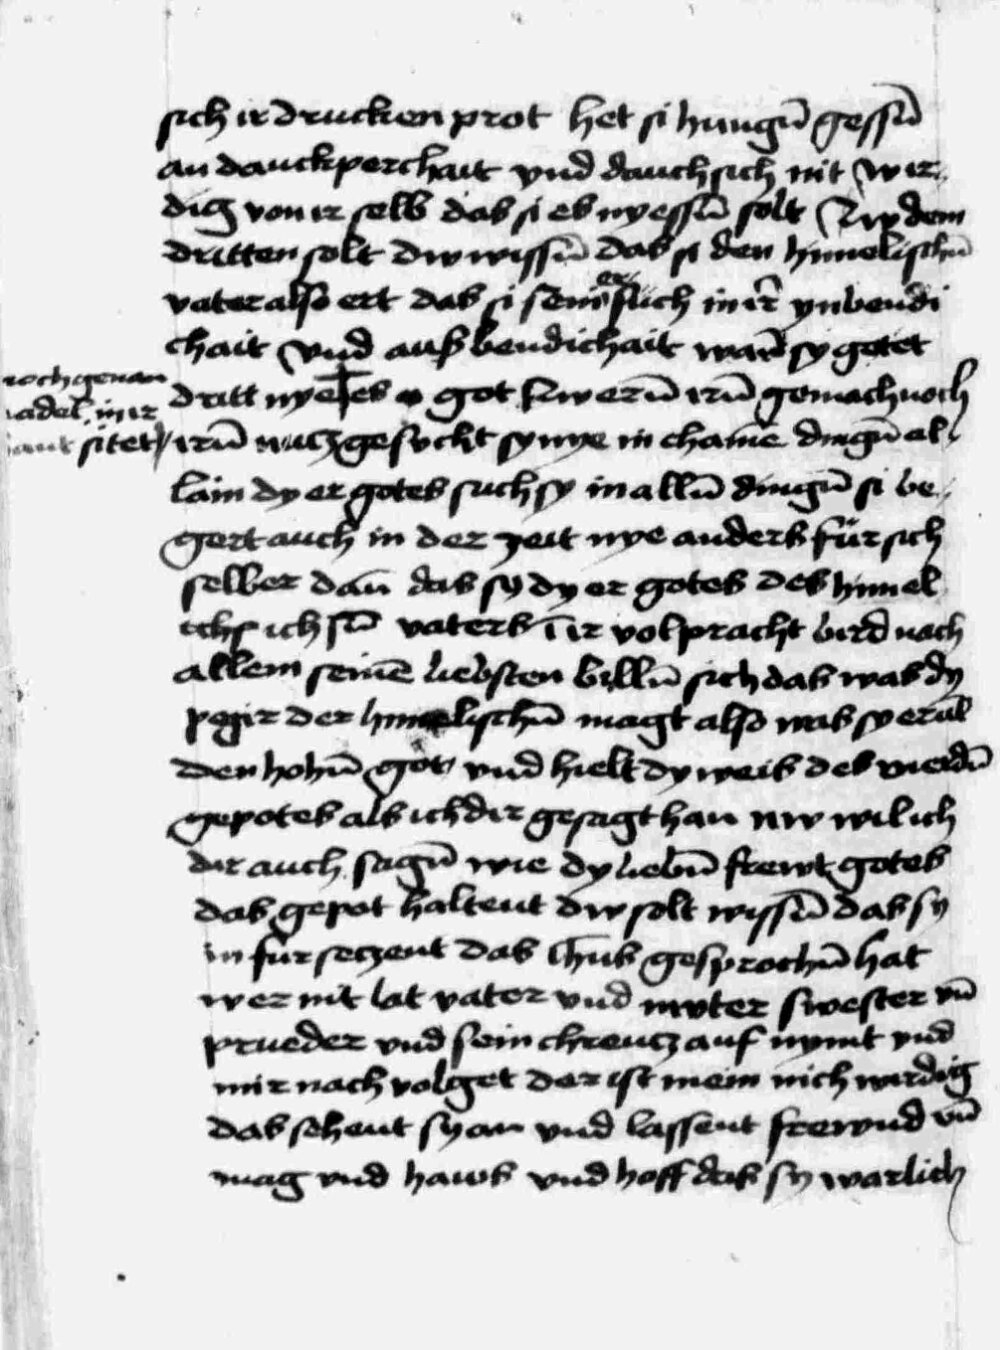 sich ir drucken prot het si hungū gessn̄
an danckperchait vnd dauch sich nit wir
dig von ir selb das si es nyessn̄ solt Zw dem
dritten solt dw wissn̄ das si den himelischn̄
vater also ert das si
chait vnd auss bendichait warn̄ sy getet
noch genan
nadel in ir
hant sitet
dritt nye es got irn̄ gemach noch
irn̄ nucz gesucht sy nye in chaine dingn̄ al
lain dy er gotes such sy in alln̄ dingn̄ si be
gert auch in der zeit nye anders für sich
selber dan̄ das sy dy er gotes des himel
ischn̄ vaters in ir volpracht bird nach
allem seine liebsten billn̄ sich das was dy
pegir der himelischn̄ magt also was sy
den hohn̄ got vnd hielt dy weis des vierdn̄
gepotes als ich dir gesagt han nw wil ich
dir auch sagn̄ wie dy liebn̄ frewt gotes
das gepot haltent dw solt wissn̄ das sy
in fur seczent das ihus gesprochn̄ hat
wer nit lat vater vnd mvter swester vn̄
prueder vnd sein chreucz auf nymt vnd
mir nach volget der ist mein nich wirdig
das sehent sy an vnd lassent frewnd vn̄
mag vnd haws vnd hoff das sy warlich